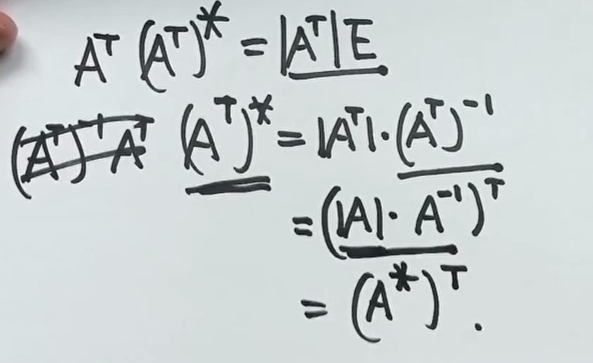 Aᵀ (Aᵀ)* = |Aᵀ|E
(Aᵀ)⁻¹ Aᵀ (Aᵀ)* = |Aᵀ|·(Aᵀ)⁻¹
= (|A|· A⁻¹)ᵀ
= (A*)ᵀ.